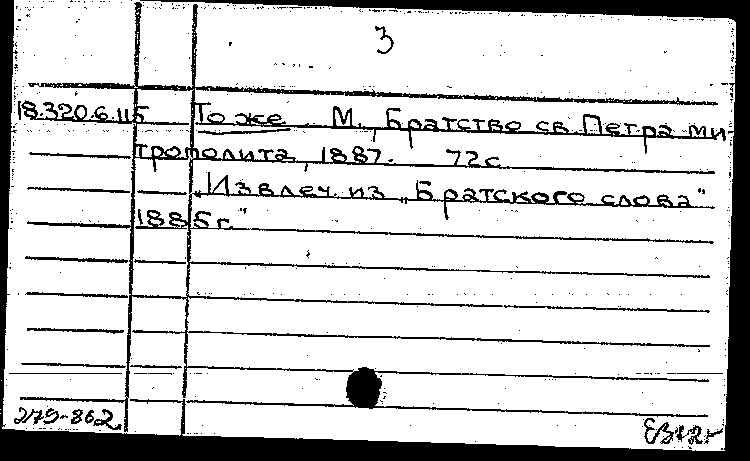 3
18.320.6.115 То же М., Братство св Петра ми
трополита, 1887. 72 с
„Извлеч. из „Братского слова"
1885 г."
279-862